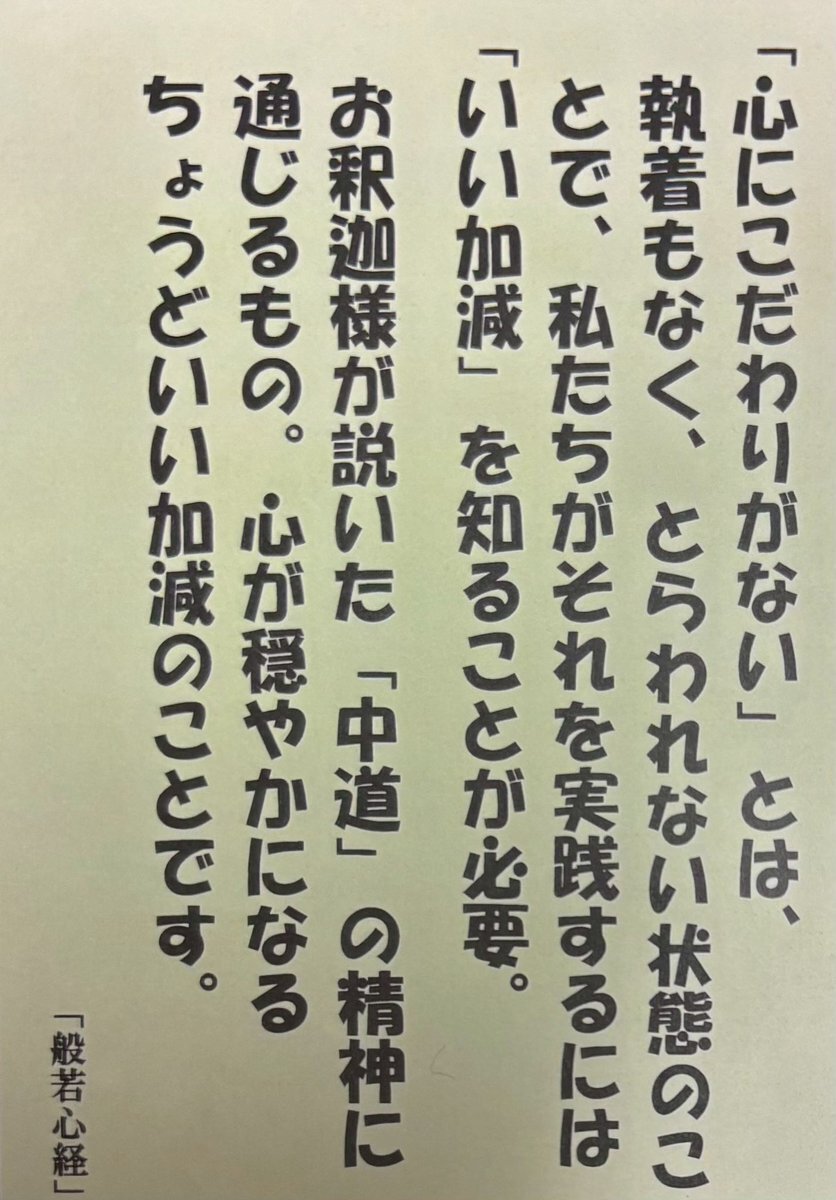 「心にこだわりがない」とは、
執着もなく、とらわれない状態のこ
とで、私たちがそれを実践するには
「いい加減」を知ることが必要。
お釈迦様が説いた「中道」の精神に
通じるもの。心が穏やかになる
ちょうどいい加減のことです。
「般若心経」